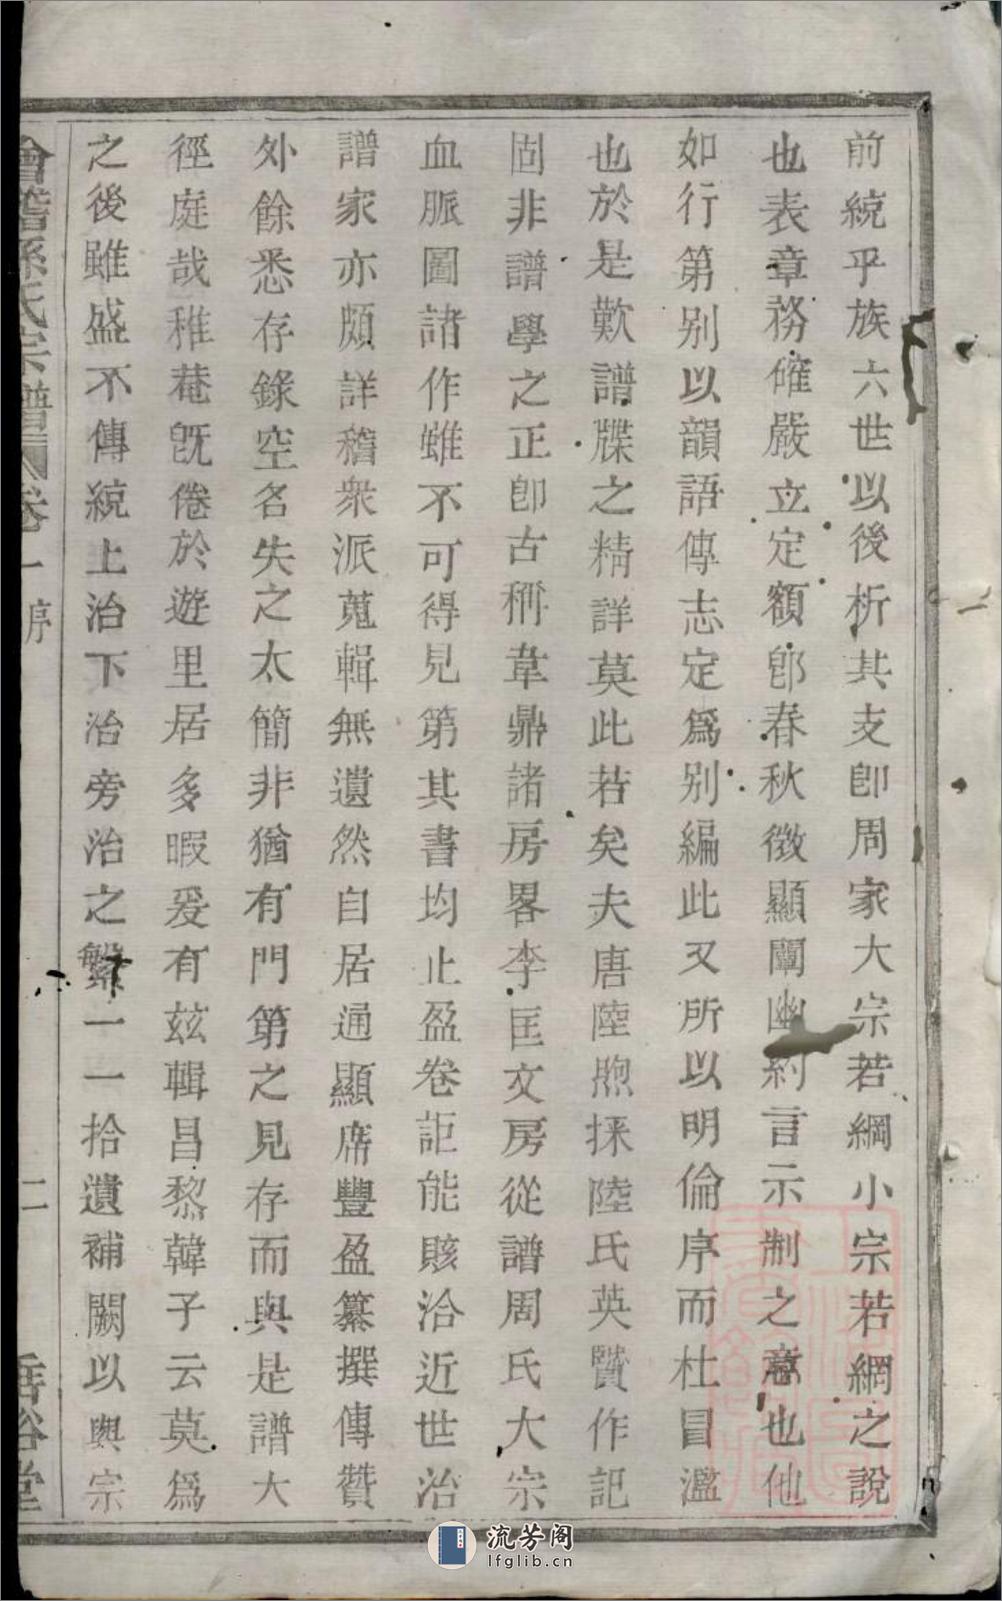 前統乎族六世以後析其支卽周家大宗若綱小宗若網之說
也表章務確嚴立定額卽春秋徵顯闡幽約言示制之意也他
如行第別以韻語傳志定爲別編此又所以明倫序而杜冒濫
也於是歎譜牒之精詳莫此若矣夫唐陸煦採陸氏英贒作記
固非譜學之正卽古稱韋鼎諸房畧李匡文房從譜周氏大宗
血脈圖諸作雖不可得見第其書均止盈卷詎能賅洽近世治
譜家亦頗詳稽衆派蒐輯無遺然自居通顯席豐盈纂撰傳贊
外餘悉存錄空名失之太簡非猶有門第之見存而與是譜大
徑庭哉稚菴旣倦於遊里居多暇爰有玆輯昌黎韓子云莫爲
之後雖盛不傳統上治下治旁治之繁一一拾遺補闕以輿宗
會稽孫氏宗譜 卷一 序 二 垂裕堂
流芳阁
lfglib.cn